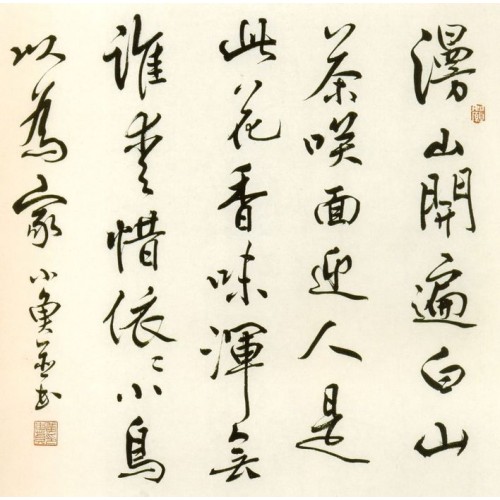 漫山開遍白山
茶咲面迎人是
此花香味渾無
誰愛惜依〻小鳥
以為家 小魚並书